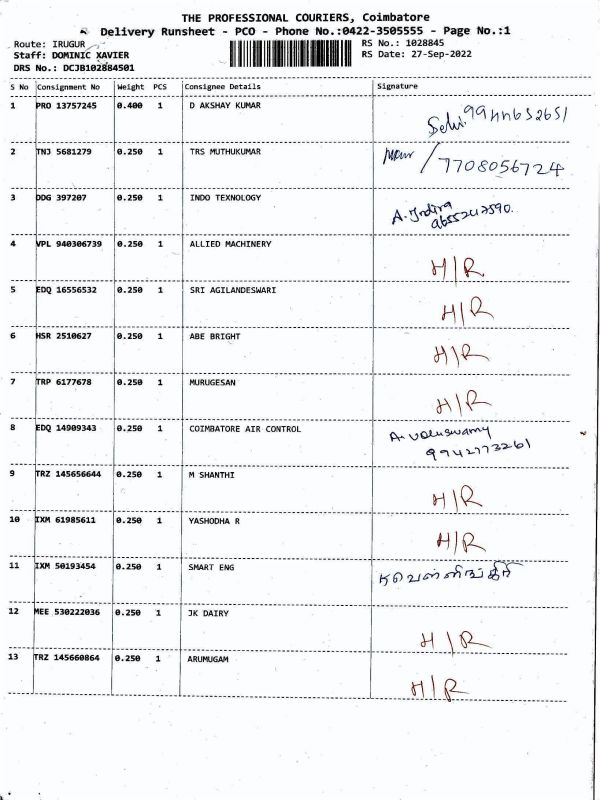 THE PROFESSIONAL COURIERS, Coimbatore
Delivery Runsheet - PCO - Phone No.:0422-3505555 - Page No.:1
Route: IRUGUR
RS No.: 1028845
Staff: DOMINIC XAVIER
RS Date: 27-Sep-2022
DRS No.: DCJB102884501
S No Consignment No Weight PCS Consignee Details Signature
1 PRO 13757245 0.400 1 D AKSHAY KUMAR
2 TNJ 5681279 0.250 1 TRS MUTHUKUMAR 7708056724
3 DDG 397207 0.250 1 INDO TEXNOLOGY A. Indira
9655247590.
4 VPL 940306739 0.250 1 ALLIED MACHINERY H/R
5 EDQ 16556532 0.250 1 SRI AGILANDESWARI H/R
6 HSR 2510627 0.250 1 ABE BRIGHT H/R
7 TRP 6177678 0.250 1 MURUGESAN H/R
8 EDQ 14909343 0.250 1 COIMBATORE AIR CONTROL A. Veluswamy
9942773261
9 TRZ 145656644 0.250 1 M SHANTHI H/R
10 IXM 61985611 0.250 1 YASHODHA R H/R
11 IXM 50193454 0.250 1 SMART ENG
12 MEE 530222036 0.250 1 JK DAIRY H/R
13 TRZ 145660864 0.250 1 ARUMUGAM H/R